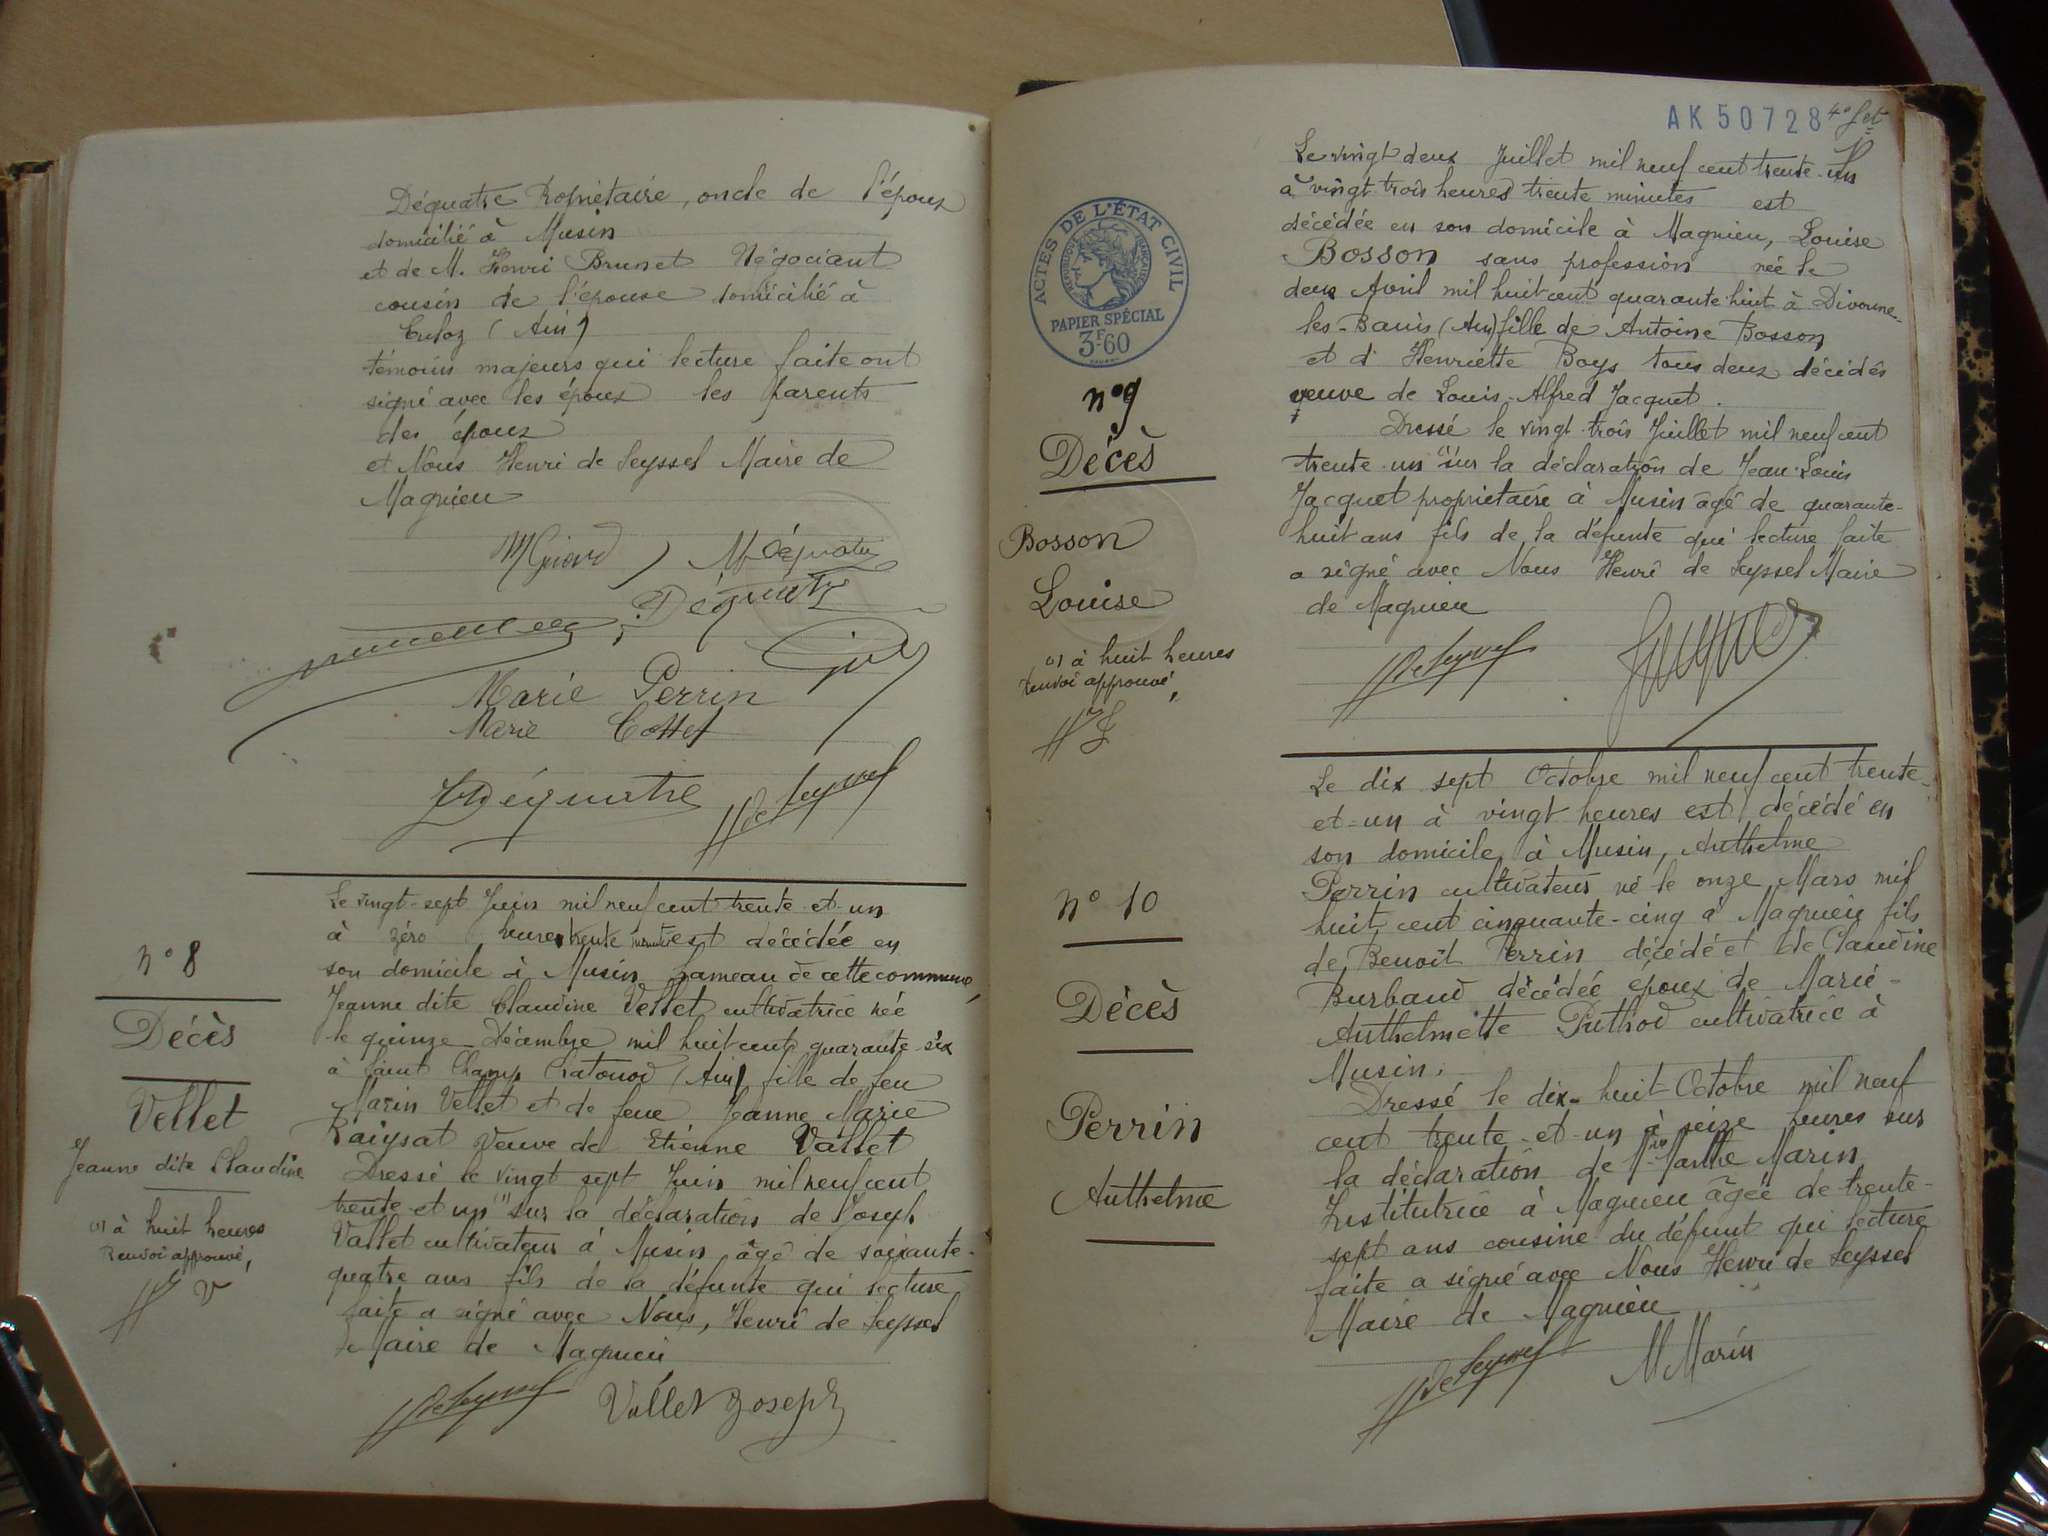 Déquatre Propriétaire, oncle de l'époux
domicilié à Musin
et de M. Henri Brunet Négociant
cousin de l'épouse domicilié à
Culoz (Ain)
témoins majeurs qui lecture faite ont
signé avec les époux les parents
des époux
et Nous Henri de Seyssel Maire de
Magnieu
Déquatre
Marie Perrin
Marie Cottet
Déquatre
H de Seyssel
n° 8
Décès
Vellet
Jeanne dite Claudine
(1) à huit heures
Renvoi approuvé,
V
Le vingt-sept Juin mil neuf cent trente-et-un
à zéro heure trente minutes est décédée en
son domicile à Musin hameau de cette commune,
Jeanne dite Claudine Vellet cultivatrice née
le quinze Décembre mil huit cent quarante-six
à Saint Champ Chatonod (Ain) fille de feu
Marin Vellet et de feue Jeanne Marie
Raiysat Veuve de Etienne Vallet
Dressé le vingt sept Juin mil neuf cent
trente-et un (1) sur la déclaration de Joseph
Vallet cultivateur à Musin, âgé de soixante-
quatre ans fils de la défunte qui lecture
faite a signé avec Nous, Henri de Seyssel
Maire de Magnieu
H de Seyssel
Vallet Joseph
AK 50728
ACTES DE L'ÉTAT CIVIL
RÉPUBLIQUE FRANÇAISE
PAPIER SPÉCIAL
3F.60
n° 9
Décès
Bosson
Louise
(1) à huit heures
Renvoi approuvé,
Le vingt deux Juillet mil neuf cent trente-un
à vingt trois heures trente minutes est
décédée en son domicile à Magnieu, Louise
Bosson sans profession née le
deux Avril mil huit cent quarante-huit à Divonne-
les-Bains (Ain) fille de Antoine Bosson
et d'Henriette Boys tous deux décédés
veuve de Louis-Alfred Jacquet.
Dressé le vingt-trois Juillet mil neuf cent
trente-un (1) sur la déclaration de Jean-Louis
Jacquet propriétaire à Musin âgé de quarante-
huit ans fils de la défunte qui lecture faite
a signé avec Nous Henri de Seyssel Maire
de Magnieu
H de Seyssel
Jacquet
n° 10
Décès
Perrin
Anthelme
Le dix sept Octobre mil neuf cent trente-
et-un à vingt heures est décédé en
son domicile à Musin, Anthelme
Perrin cultivateur né le onze Mars mil
huit cent cinquante-cinq à Magnieu fils
de Benoît Perrin décédé et de Claudine
Burbaud décédée époux de Marie-
Anthelmette Puthod cultivatrice à
Musin.
Dressé le dix-huit Octobre mil neuf
cent trente-et-un à seize heures sur
la déclaration de Mme Marthe Marin
Institutrice à Magnieu âgée de trente-
sept ans cousine du défunt qui lecture
faite a signé avec Nous Henri de Seyssel
Maire de Magnieu
H de Seyssel
M Marin